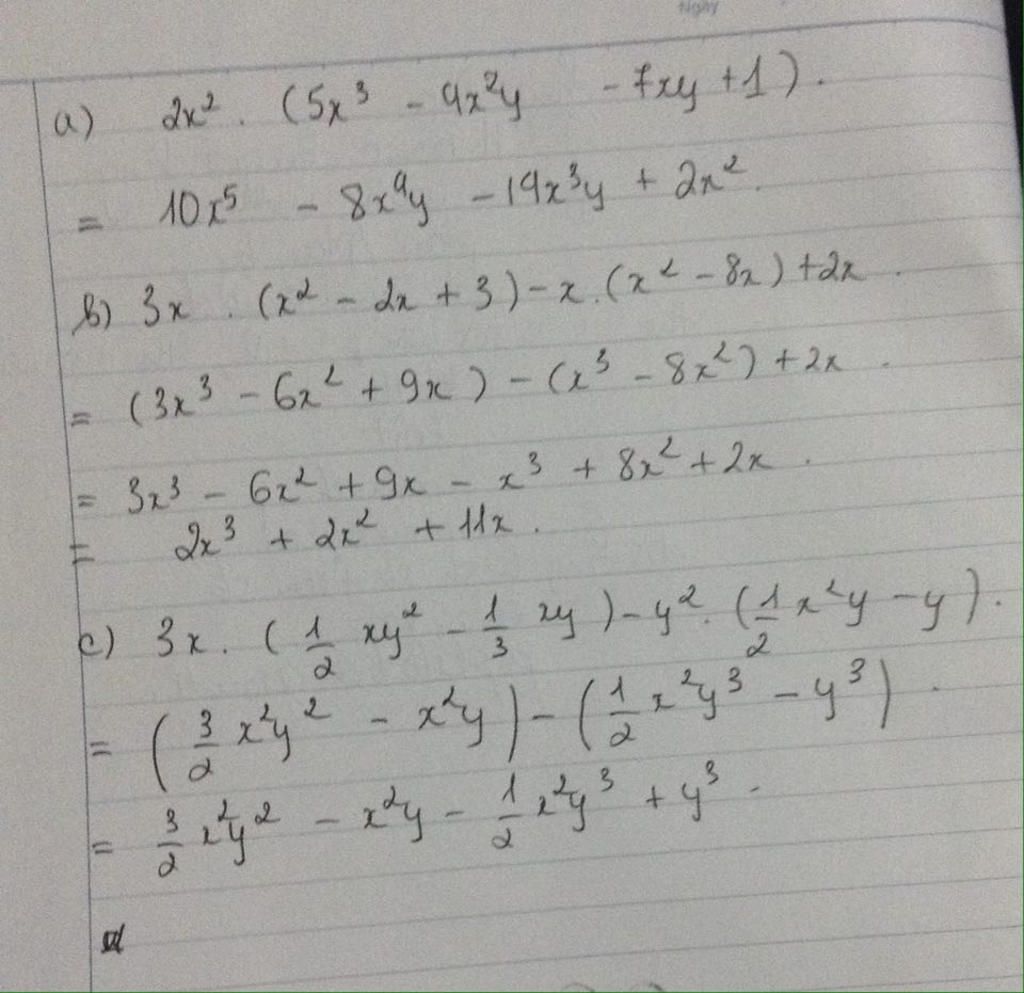 Ngày
a) 2x² . (5x³ - 4x²y - 7xy + 1).
= 10x⁵ - 8x⁴y - 14x³y + 2x².
b) 3x . (x² - 2x + 3) - x.(x² - 8x) + 2x .
= (3x³ - 6x² + 9x) - (x³ - 8x²) + 2x .
= 3x³ - 6x² + 9x - x³ + 8x² + 2x .
= 2x³ + 2x² + 11x .
c) 3x. (1/2 xy² - 1/3 xy) - y². (1/2 x²y - y).
= (3/2 x²y² - x²y) - (1/2 x²y³ - y³) .
= 3/2 x²y² - x²y - 1/2 x²y³ + y³ .